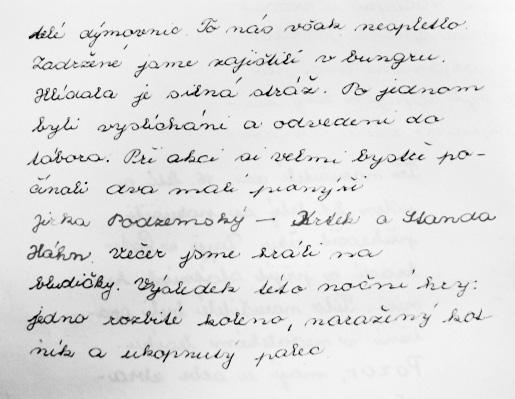 telé dýmovnic. To nás však neopletlo.
Zadržené jsme zajistili v bungru.
Hlídala je silná stráž. Po jednom
byli vyslícháni a odvedeni do
tábora. Při akci si velmi bystře po-
čínali dva malí pionýři
Jirka Podzemský – Krtek a Standa
Háhn. Večer jsme hráli na
bludičky. Výsledek této noční hry:
jedno rozbité koleno, naražený kot
ník a ukopnutý palec.